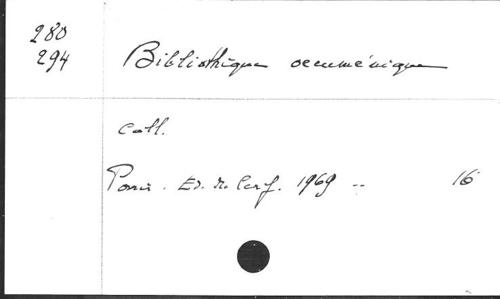 280
294
Bibliothèque oecuménique
Coll.
Paris. Ed. du Cerf. 1969 .. 16